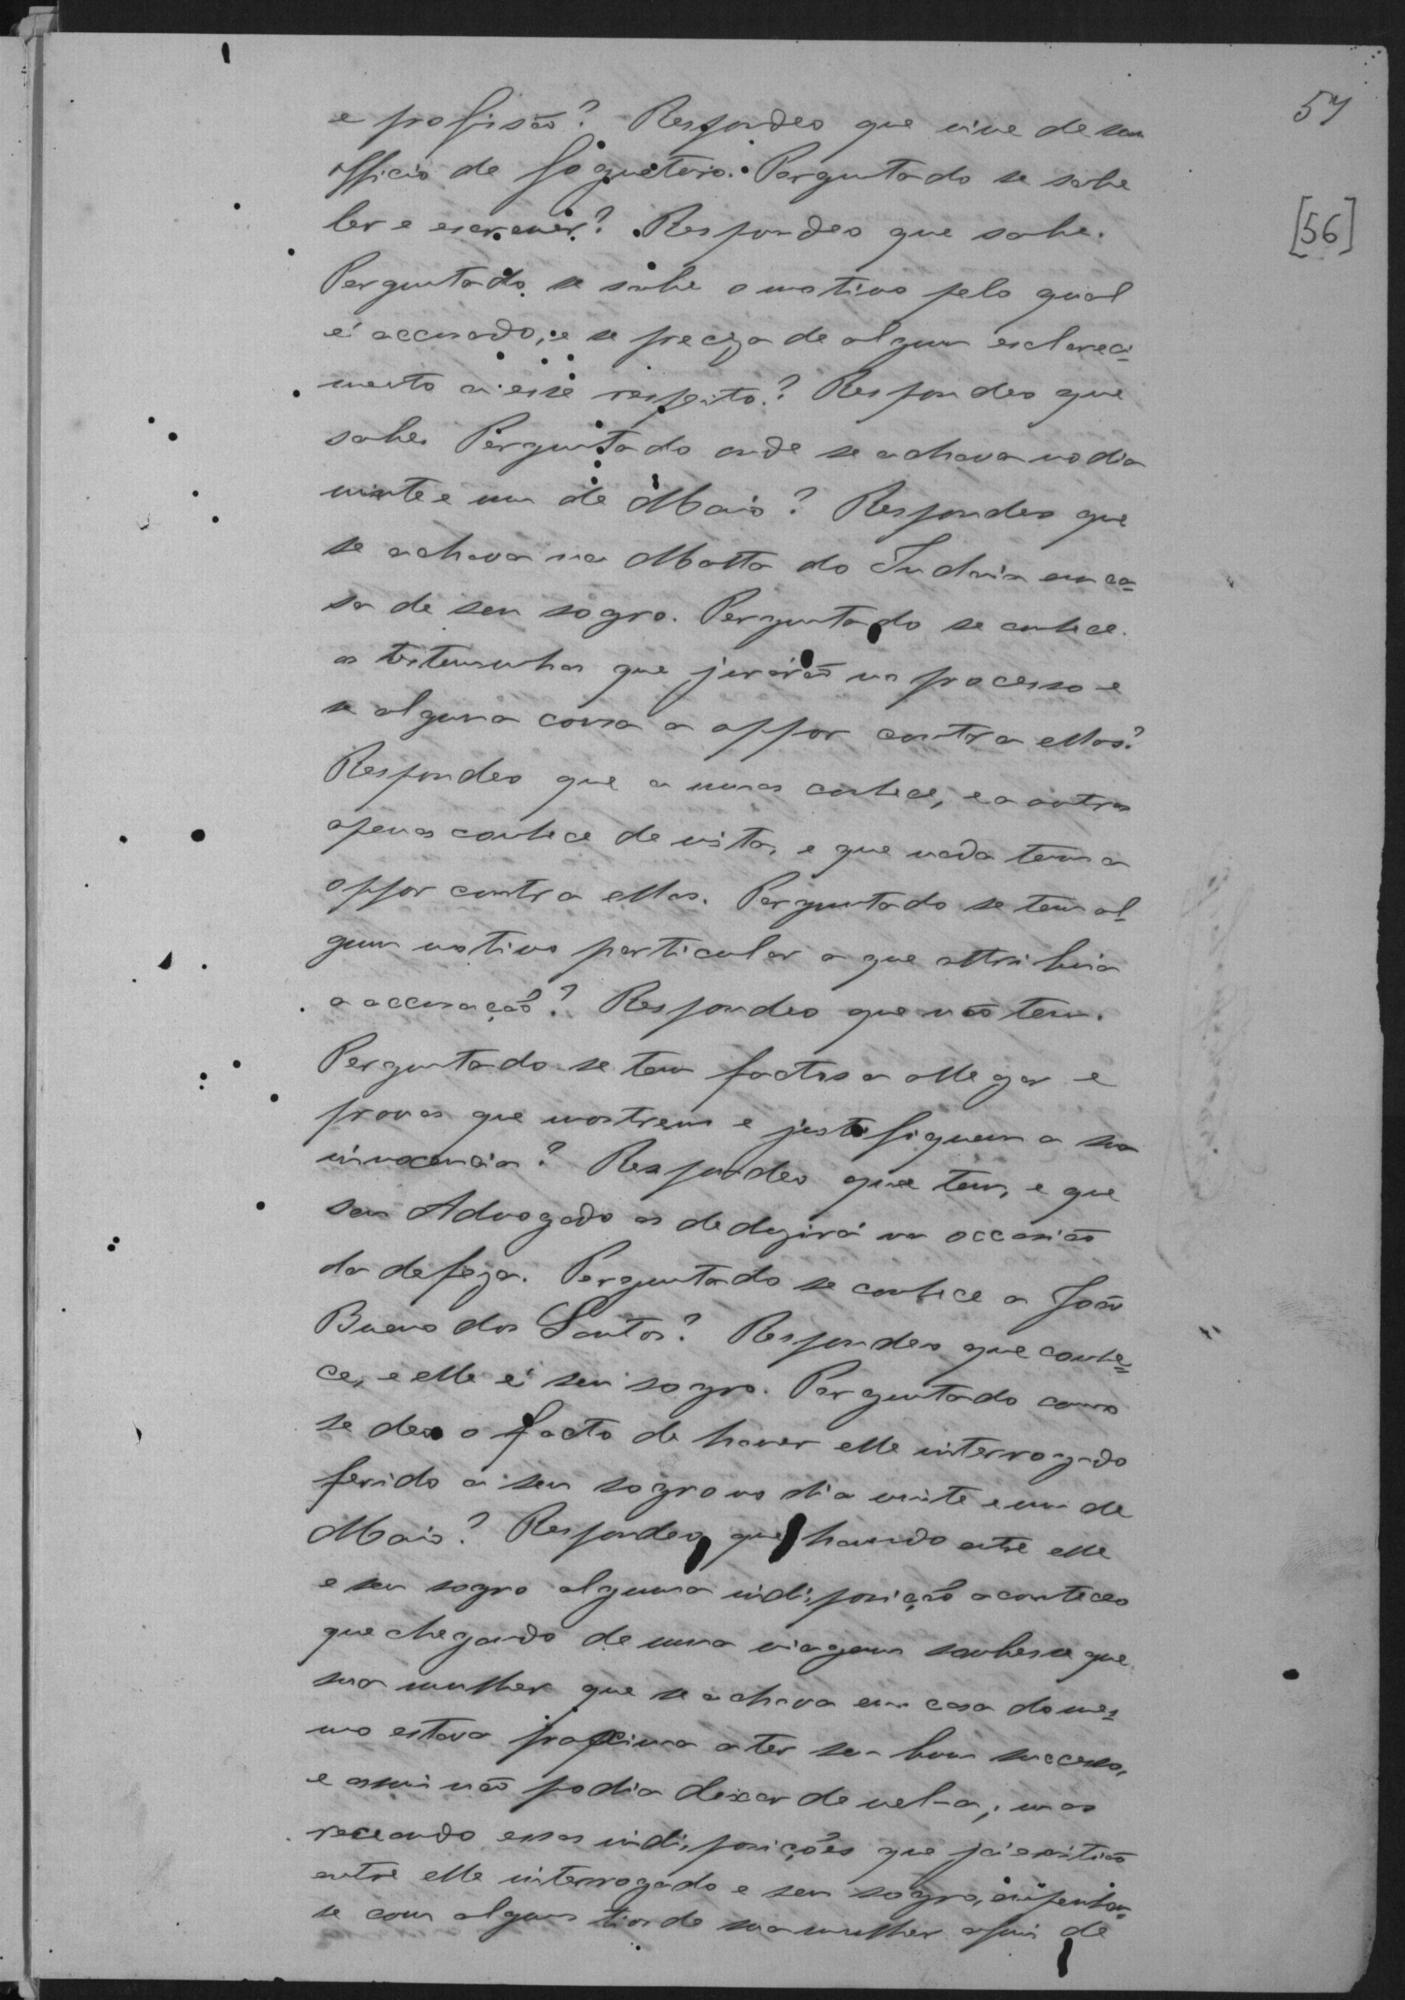 57
[56]
e profisão? Respondeo que vive de seu
officio de fogueteiro. Perguntado se sabe
ler e escrever? Respondeo que sabe.
Perguntado se sabe o motivo pelo qual
é accusado, e se preciza de algum esclareci-
mento a esse respeito? Respondeo que
sabe. Perguntado onde se achava no dia
vinte e um de Maio? Respondeo que
se achava na Matta do em ca-
sa de seu sogro. Perguntado se conhece
as testemunhas que jurárão no processo e
se alguma cousa a oppor contra ellas?
Respondeo que a umas conhece, e a outras
apenas conhece de vista, e que nada tem a
oppor contra ellas. Perguntado se tem al-
gum motivo particular a que attribua
a accusação? Respondeo que não tem.
Perguntado se tem factos a allegar e
provas que mostrem e justifiquem a sua
innocencia? Respondeo que tem, e que
seu Advogado as dedusirá na occasião
da defeza. Perguntado se conhece a João
Bueno dos Santos? Respondeo que conhe-
ce, e elle é seu sogro. Perguntado como
se deo o facto de haver elle interrogado
ferido a seu sogro no dia vinte e um de
Maio? Respondeo que havendo entre elle
e seu sogro alguma indisposição aconteceo
que chegando de uma viagem soubesse que
sua mulher que se achava em casa do mes-
mo estava proxima a ter seu bom successo,
e assim não podia deixar de vel-a; mas
receando essas indisposições que já existião
entre elle interrogado e seu sogro,
se com alguns tios de sua mulher afim de